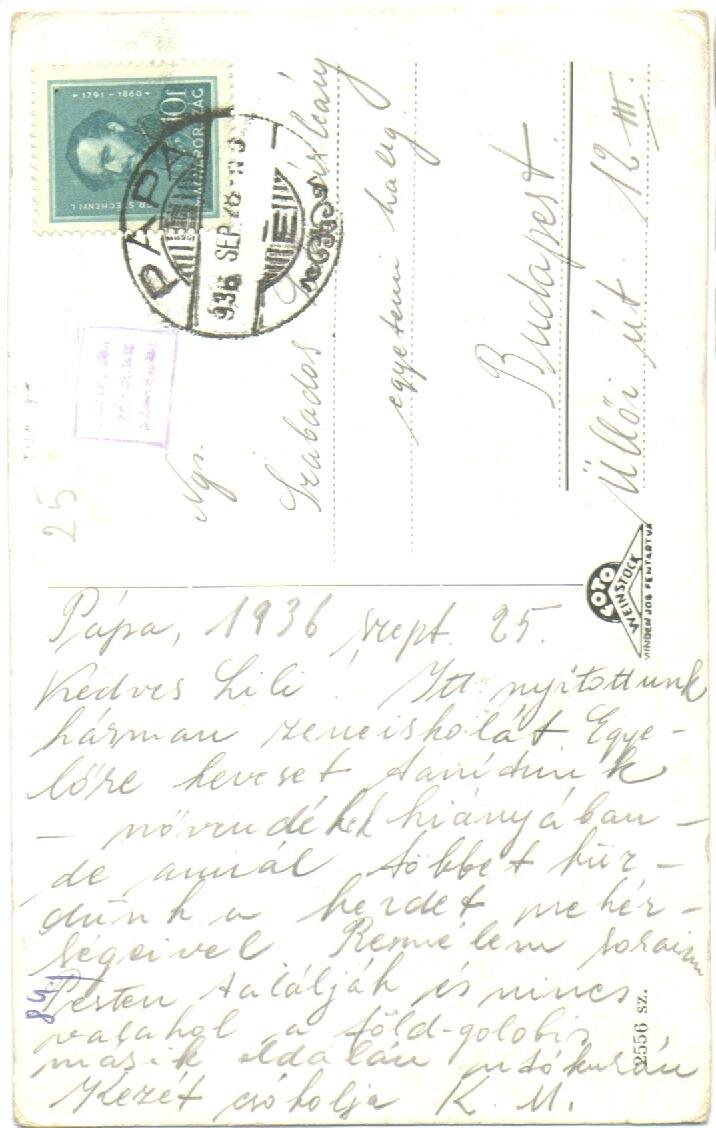 Pápa, 1936 szept. 25.
Kedves Lili! Itt nyitottunk
hárman zeneiskolát Egye-
lőre keveset tanítunk
— növendékek hiányában —
de annál többet küz-
dünk a kezdet nehéz-
ségeivel Remélem soraim
Pesten találják és nincs
valahol a föld-golobis
másik oldalán
Kezét csókolja K. M.
84)
2556 sz.
Ngs.
Szabados
egyetemi halg.
Budapest.
Üllői út 12 III.
25
+ 1791 - 1860 +
10f
MAGYARORSZÁG
GR. SZÉCHENYI I.
PÁPA
936 SEP 26
LOTO
WEINSTOCK
MINDEN JOG FENTARTVA